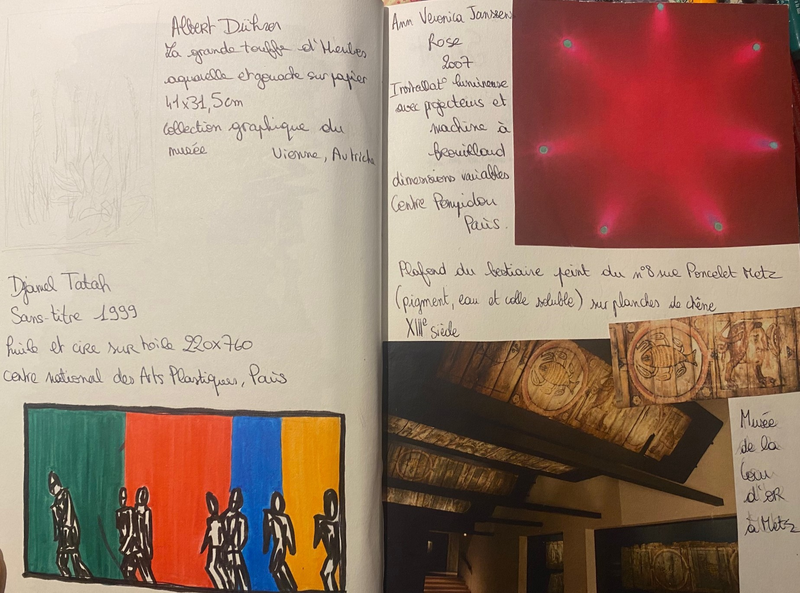 Albert Dührer
La grande touffe d'Herbes
aquarelle et gouache sur papier
41x31,5cm
collection graphique du
musée Vienne, Autriche
Djamel Tatah
Sans-titre 1999
huile et cire sur toile 220x760
centre national des Arts Plastiques, Paris
Ann Veronica Janssen
Rose
2007
Installat° lumineuse
avec projecteurs et
machine à
brouillard
dimensions variables
Centre Pompidou
Paris.
Plafond du bestiaire peint du n°8 rue Poncelet Metz
(pigment, eau et colle soluble) sur planches de chêne
XIIIe siècle
Musée
de la
Cour
d'OR
à Metz